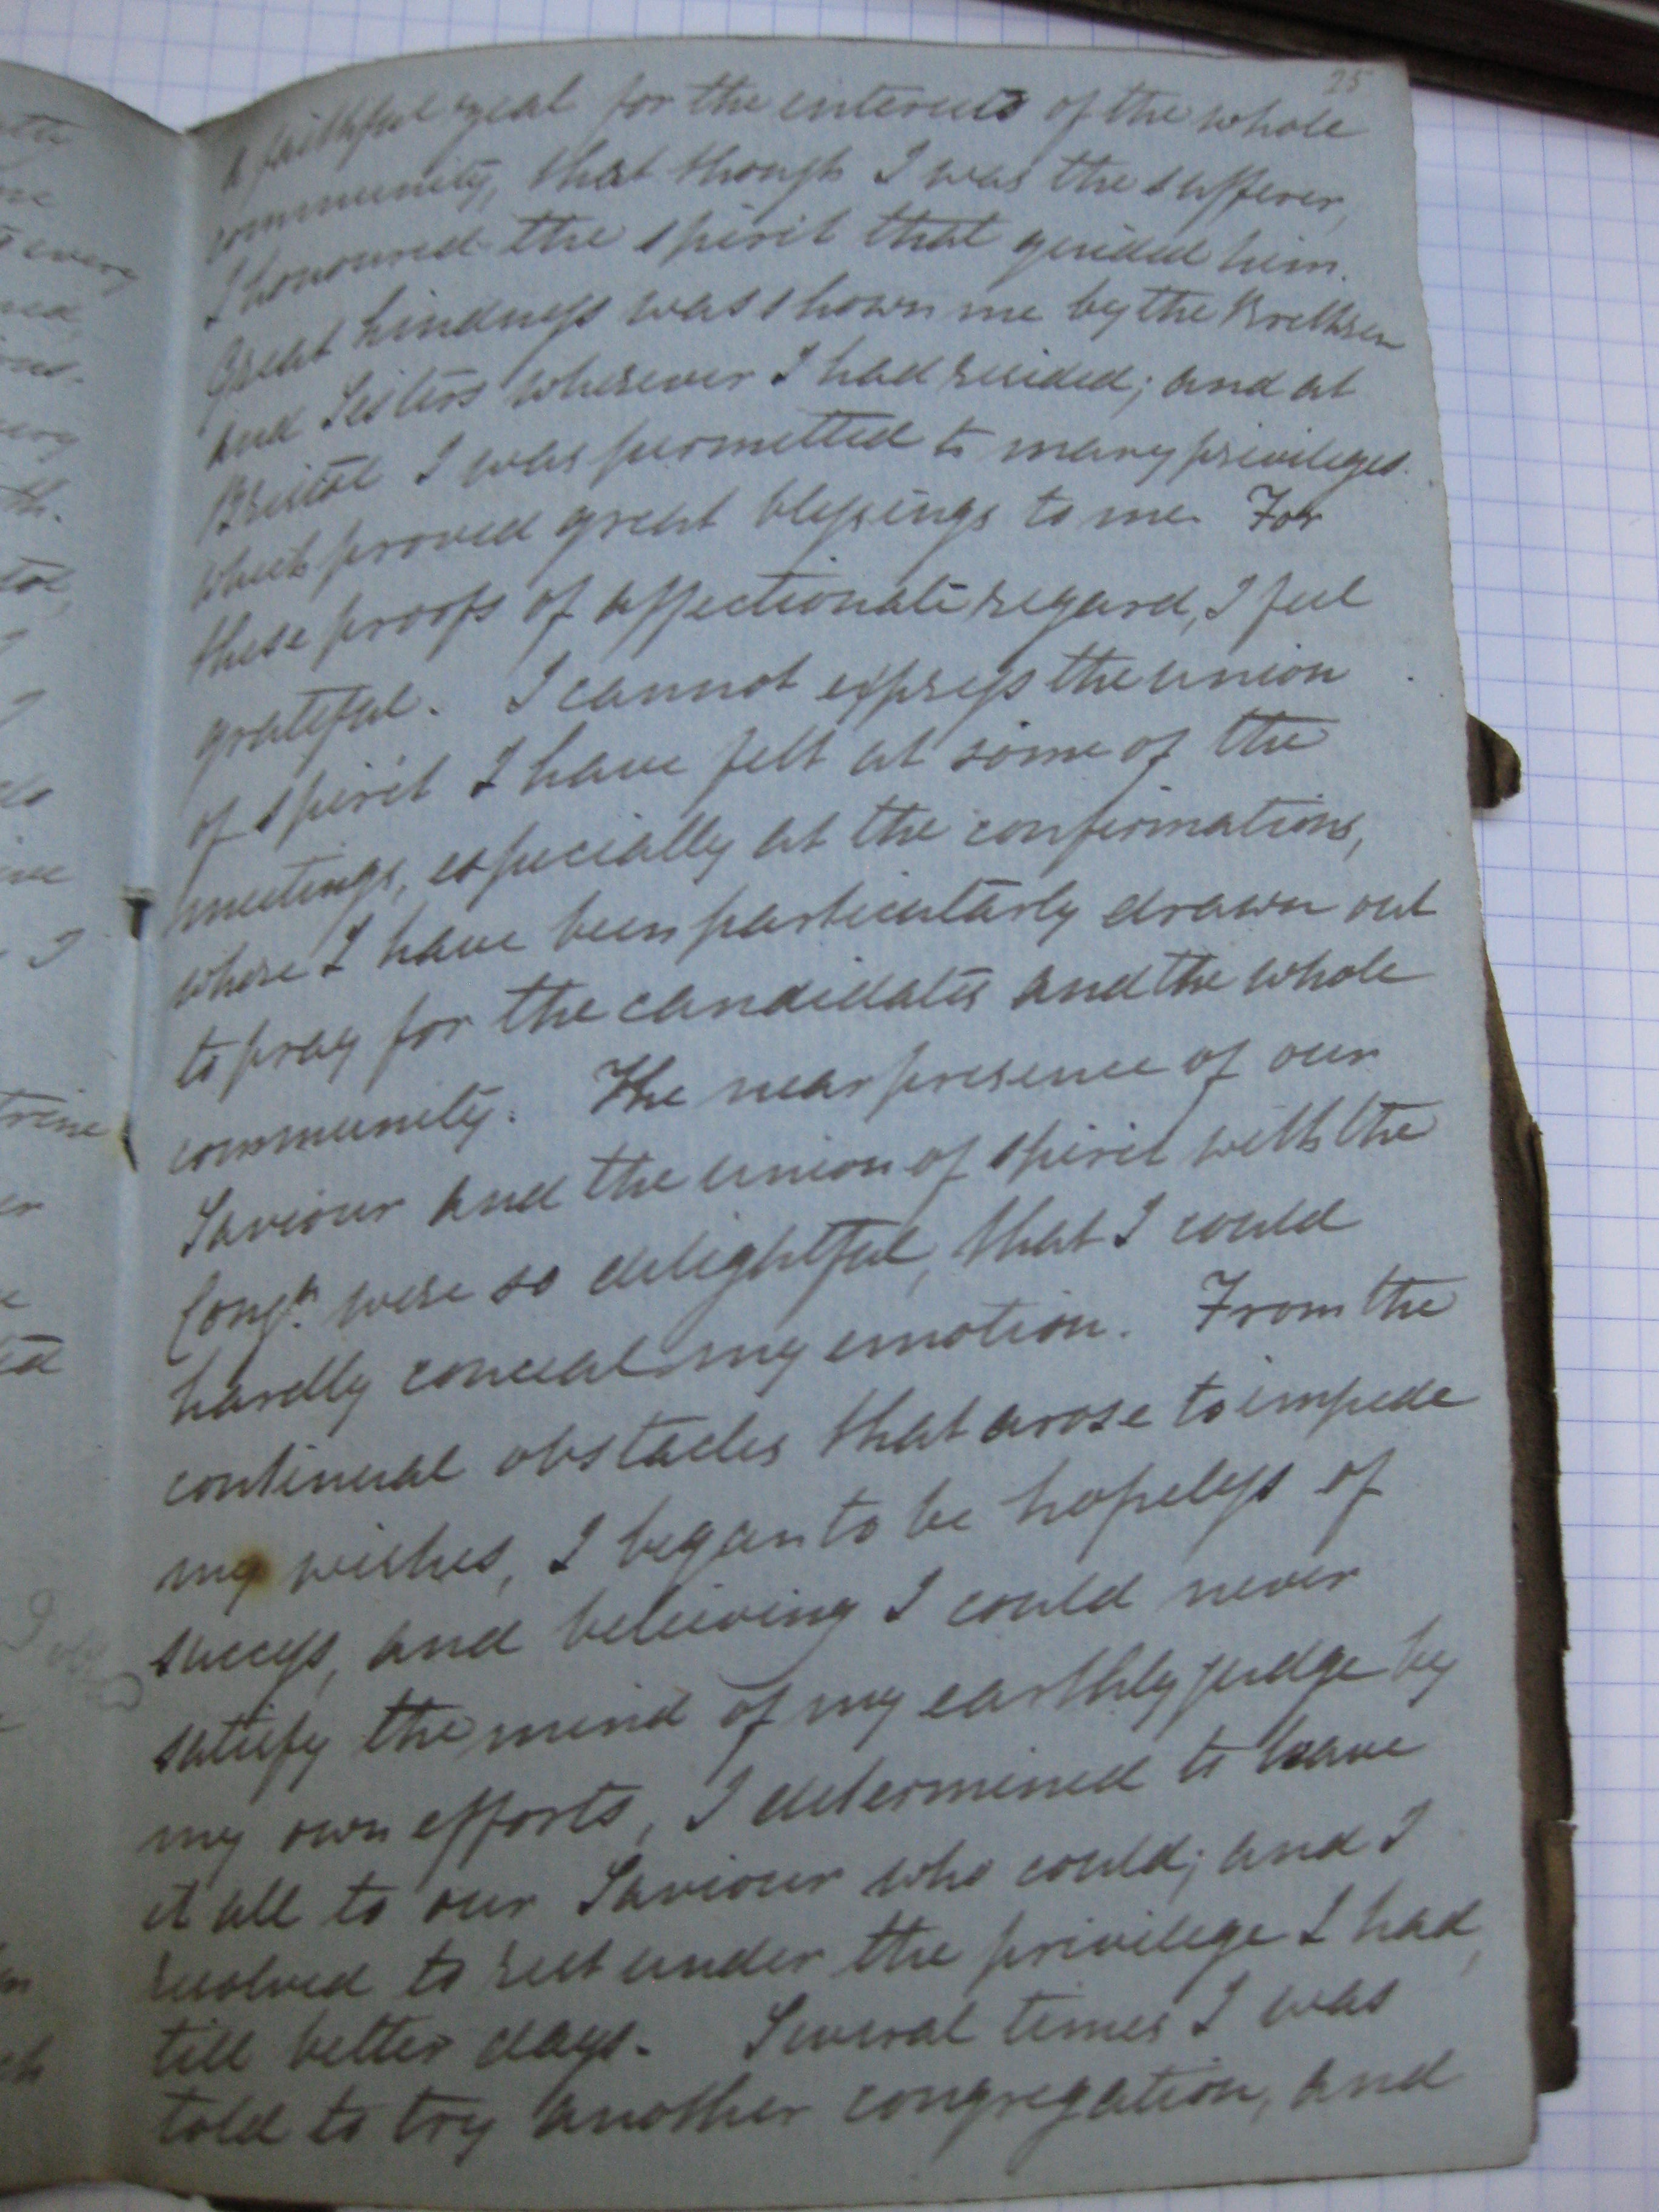 25
a faithful zeal for the interests of the whole
community, that though I was the sufferer,
I honoured the spirit that guided him.
Great kindness was shown me by the Brethren
and Sisters wherever I had resided; and at
Bristol I was permitted to many privileges
which proved great blessings to me. For
these proofs of affectionate regard, I feel
grateful. I cannot express the union
of spirit I have felt at some of the
meetings, especially at the confirmations,
where I have been particularly drawn out
to pray for the candidates and the whole
community. The near presence of our
Saviour and the union of spirit with the
Congn. were so delightful, that I could
hardly conceal my emotion. From the
continual obstacles that arose to impede
my wishes, I began to be hopeless of
success, and believing I could never
satisfy the mind of my earthly judge by
my own efforts, I determined to leave
it all to our Saviour who could; and I
resolved to rest under the privilege I had,
till better days. Several times I was
told to try another congregation, and